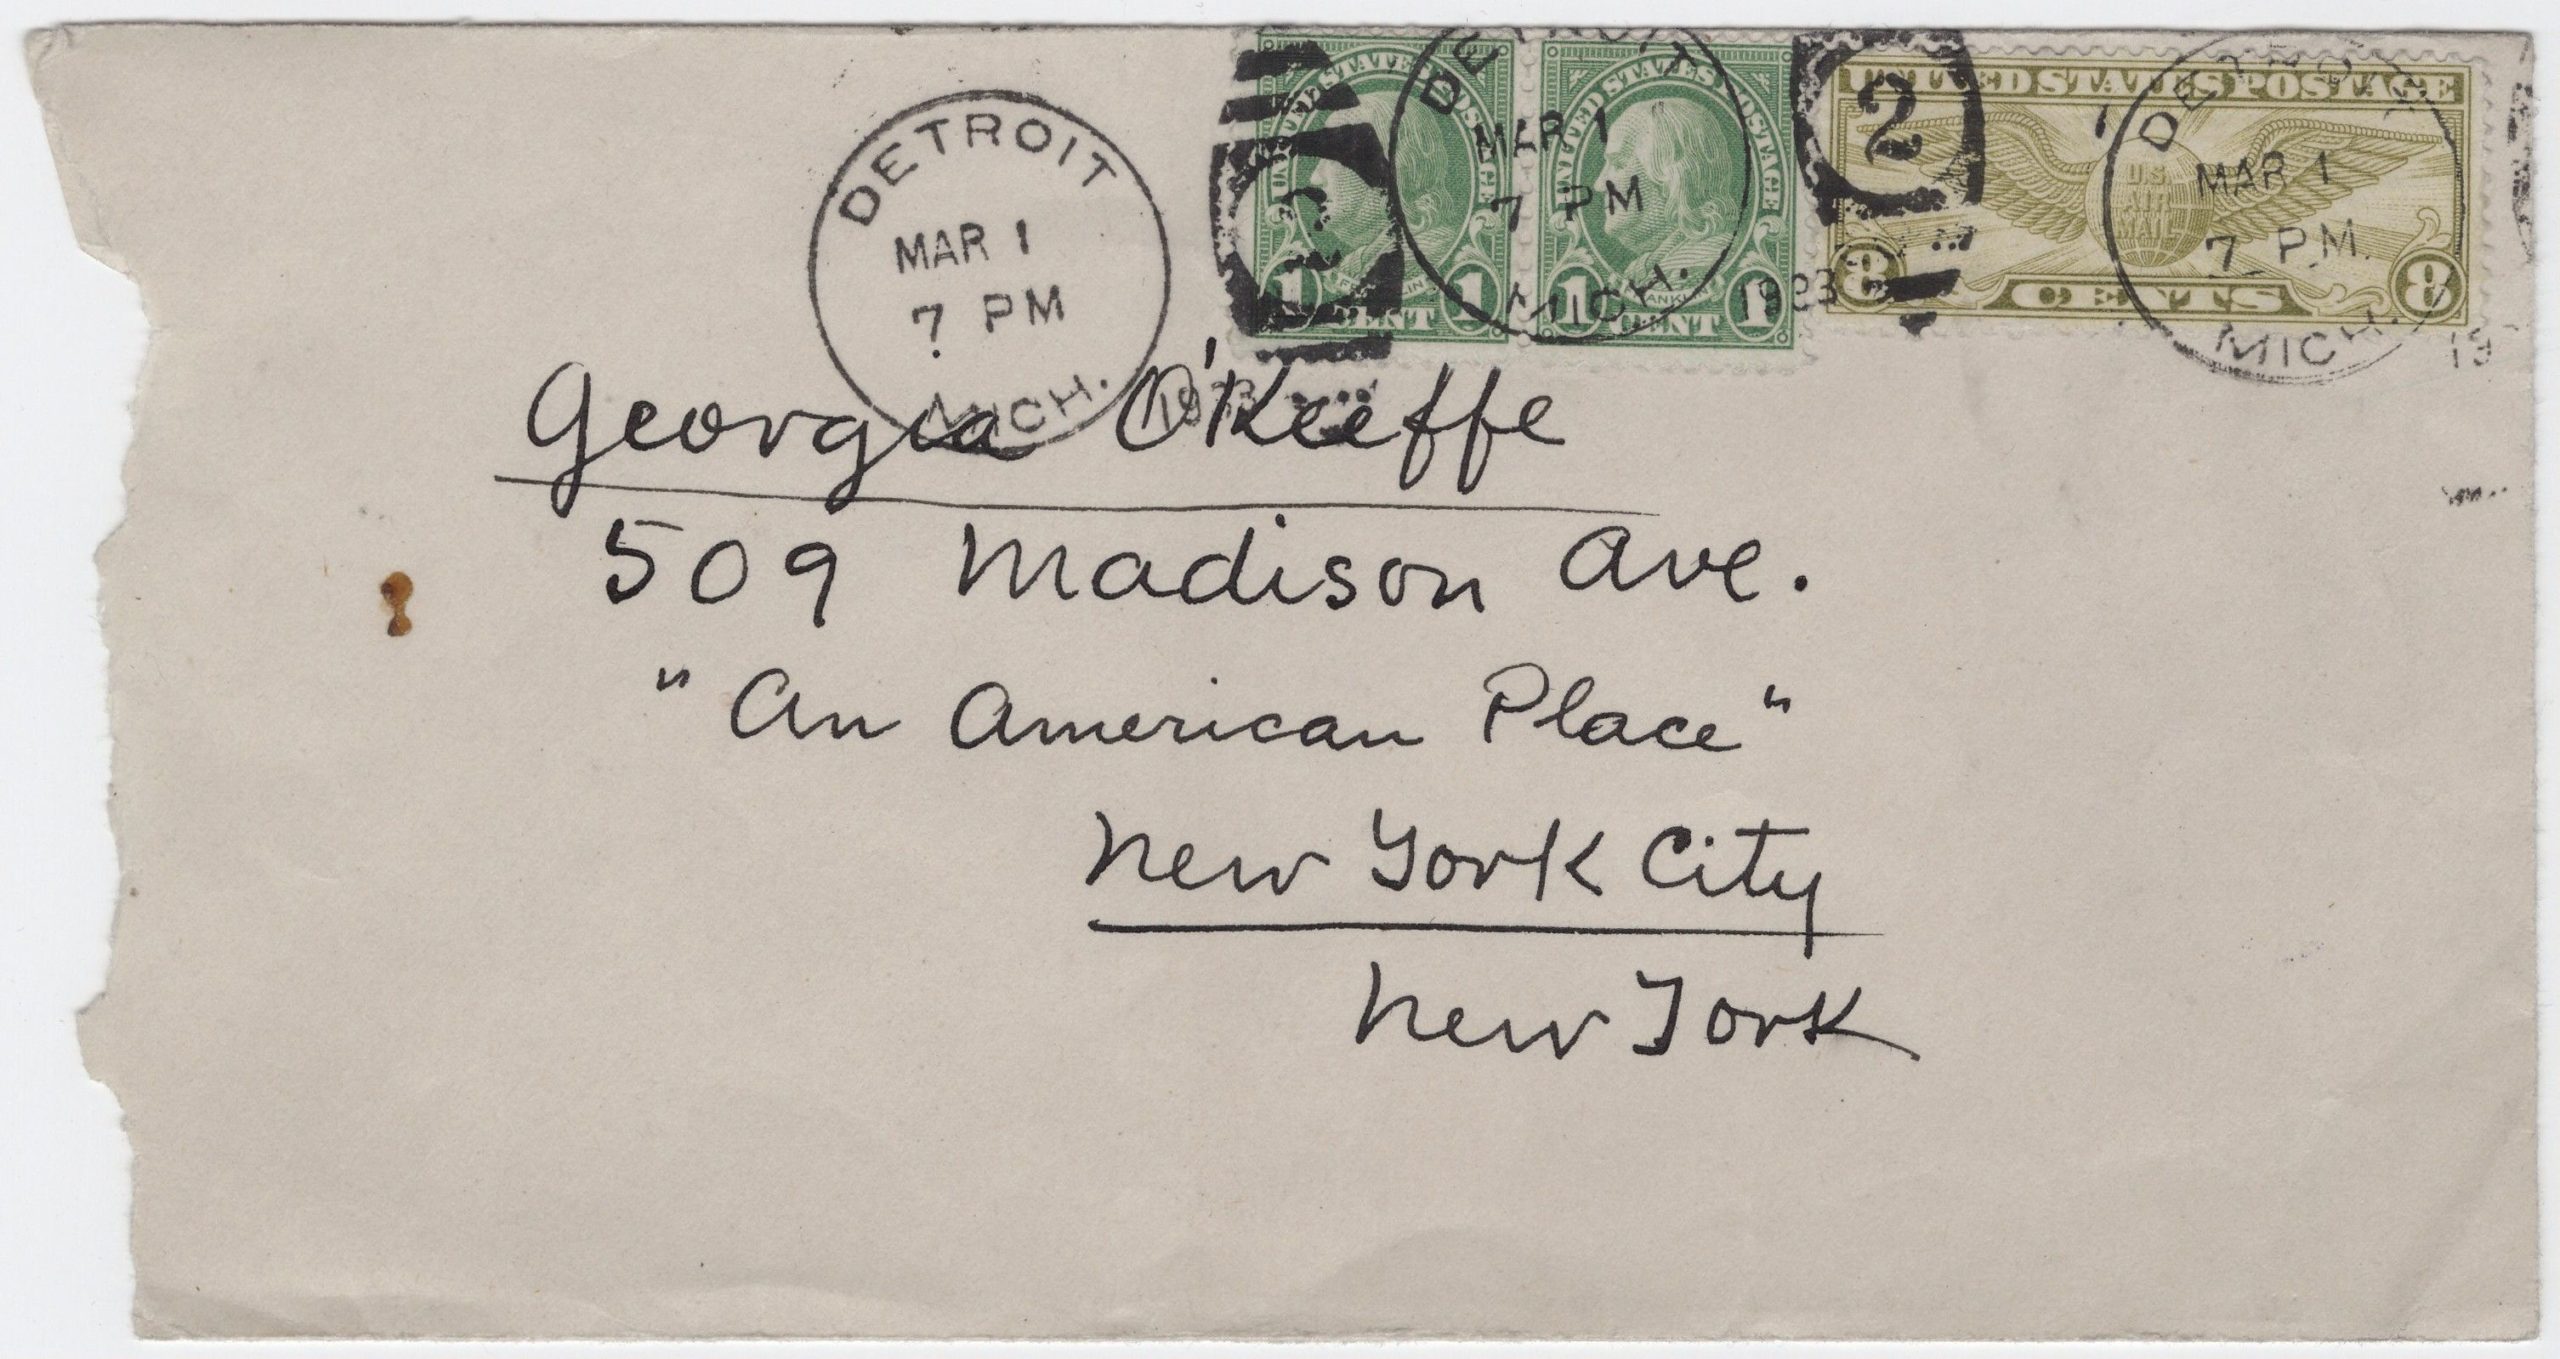 DETROIT
MAR 1
7 PM
MICH.
UNITED STATES POSTAGE
FRANKLIN
1 CENT 1
2
DETROIT
MAR 1
7 PM
MICH.
UNITED STATES POSTAGE
FRANKLIN
1 CENT 1
2
UNITED STATES POSTAGE
U.S.
AIR
MAIL
8 CENTS 8
DETROIT
MAR 1
7 PM
MICH.
Georgia O'Keeffe
509 Madison Ave.
"An American Place"
New York City
New York